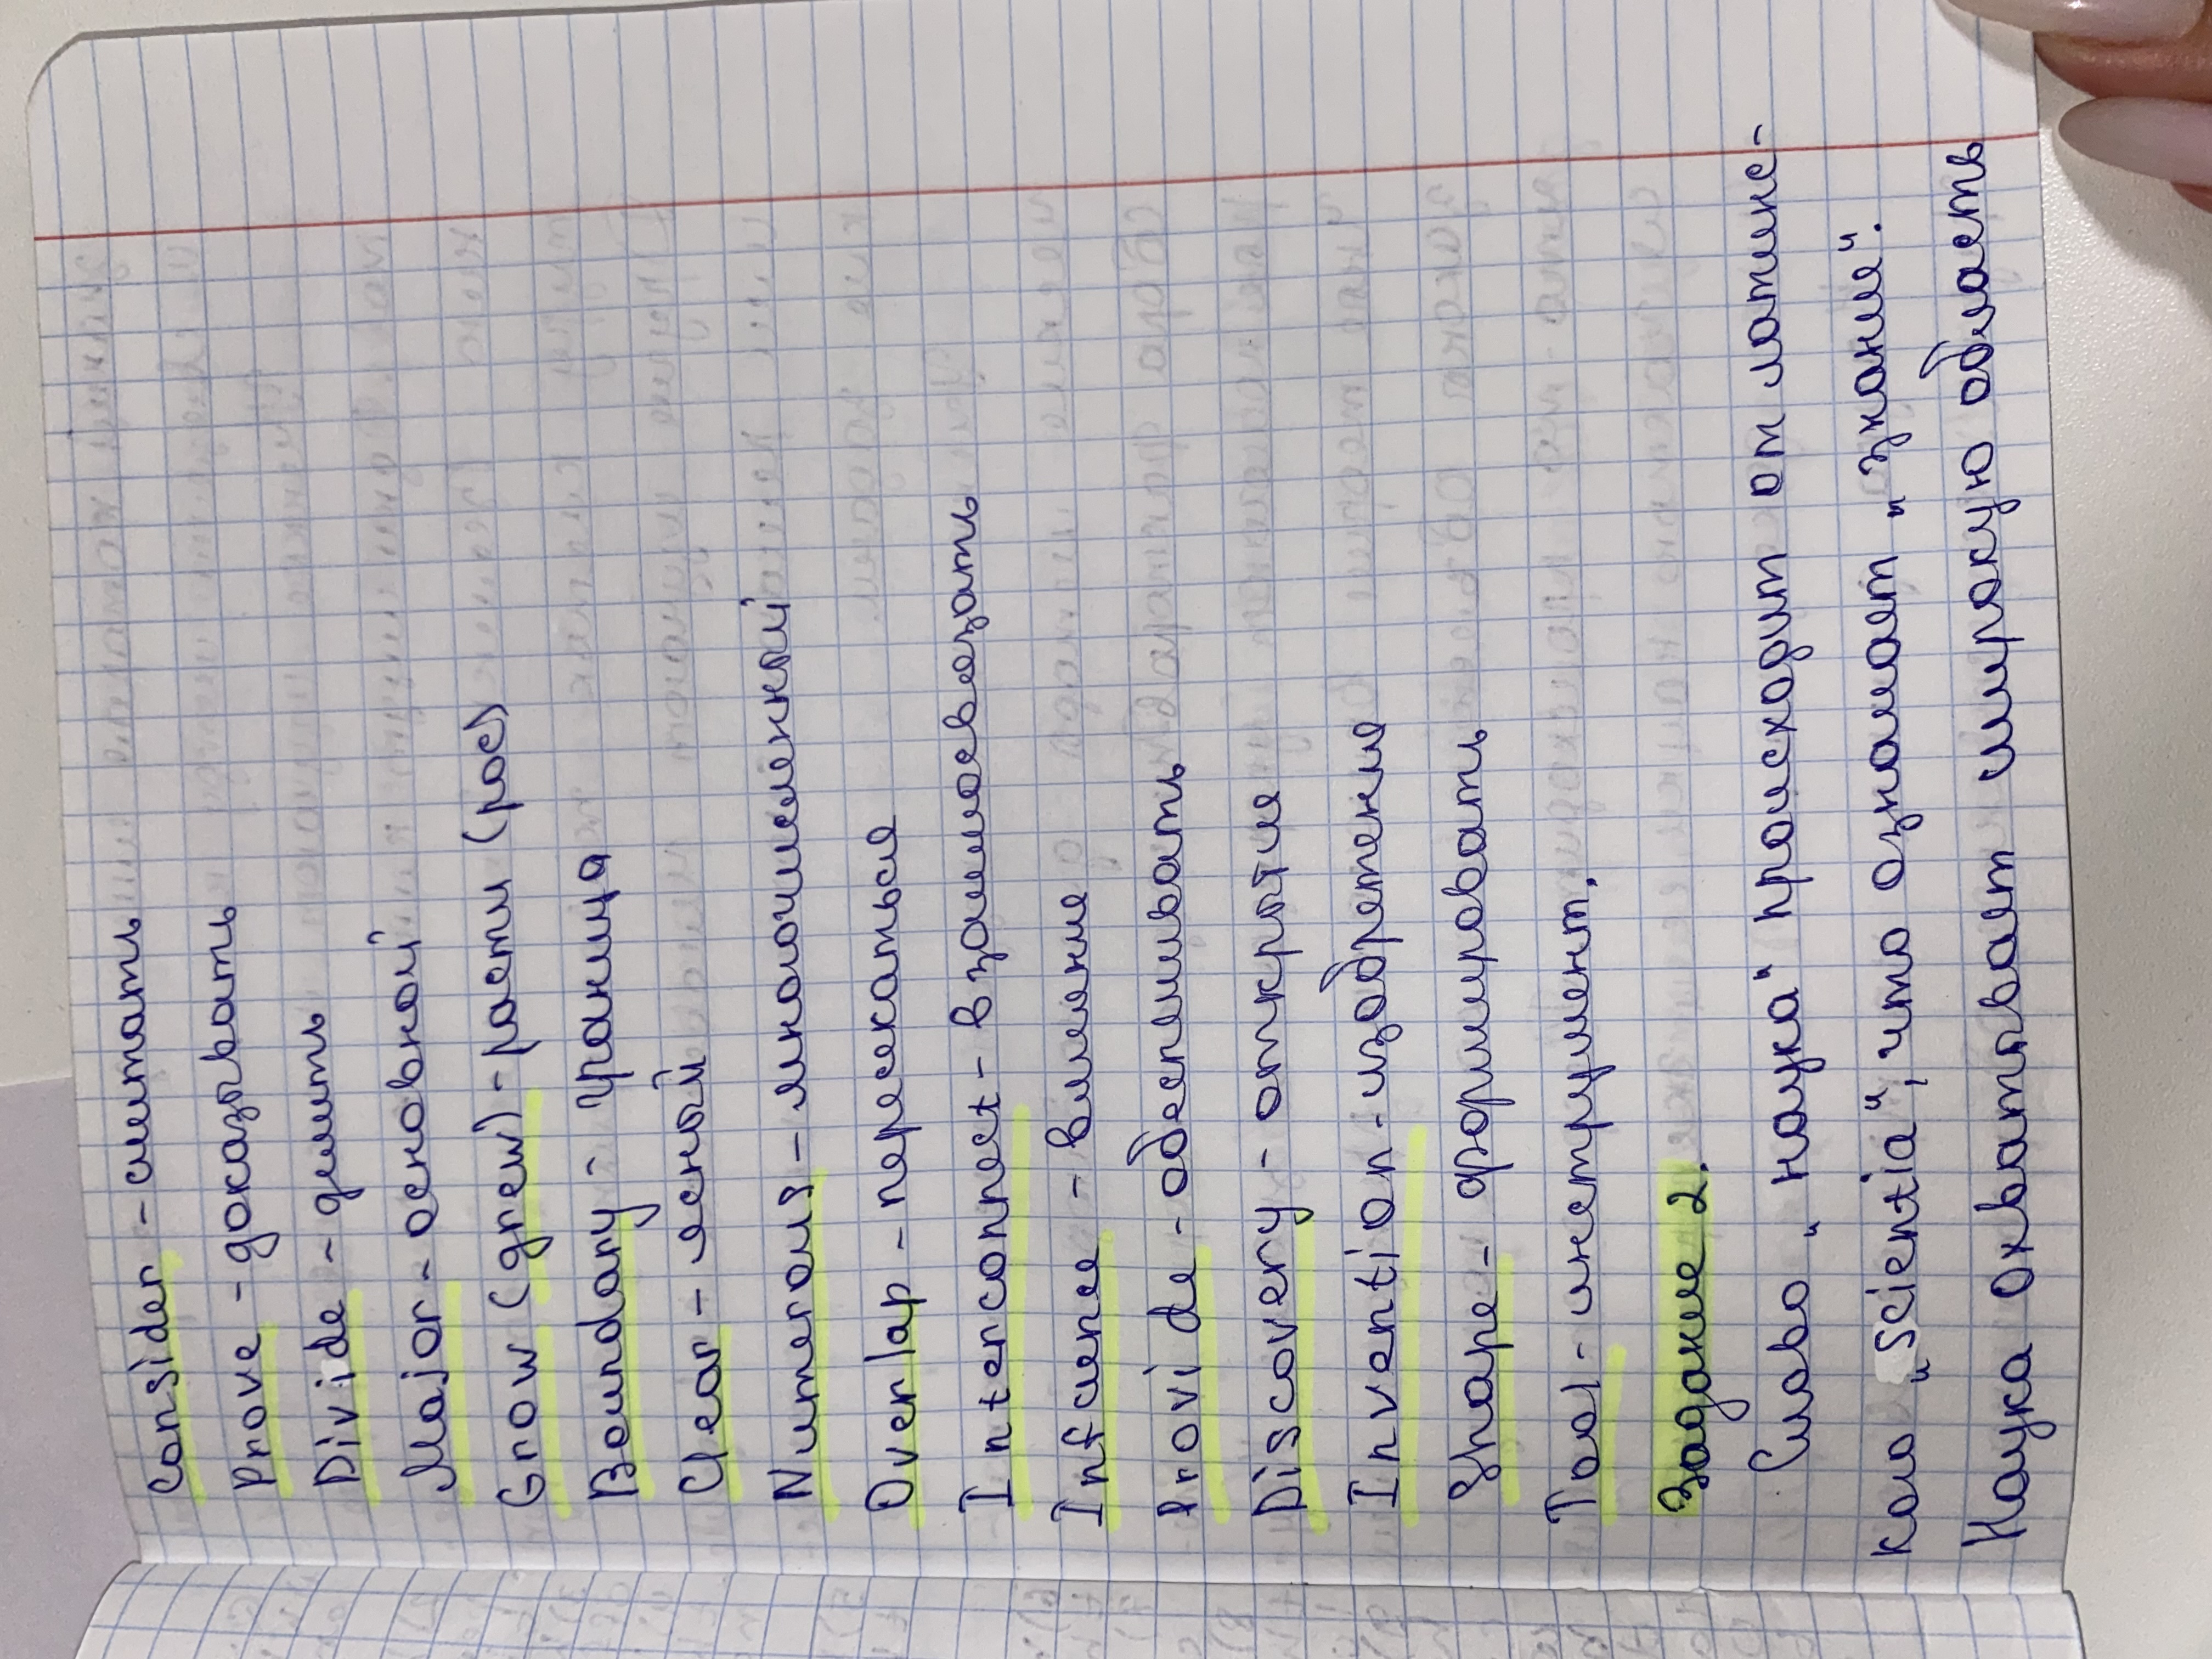 Consider - считать
Prove - доказывать
Divide - делить
Major - основной
Grow (grew) - расти (рос)
Boundary - граница
Clear - ясный
Numerous - многочисленный
Overlap - пересекаться
Interconnect - взаимосвязать
Infcuence - влияние
Provide - обеспечивать
Discovery - открытие
Invention - изобретение
Shape - формировать
Tool - инструмент.
Задание 2.
Слово „наука" происходит от латинс-
кого „scientia", что означает „знание".
Наука охватывает широкую область